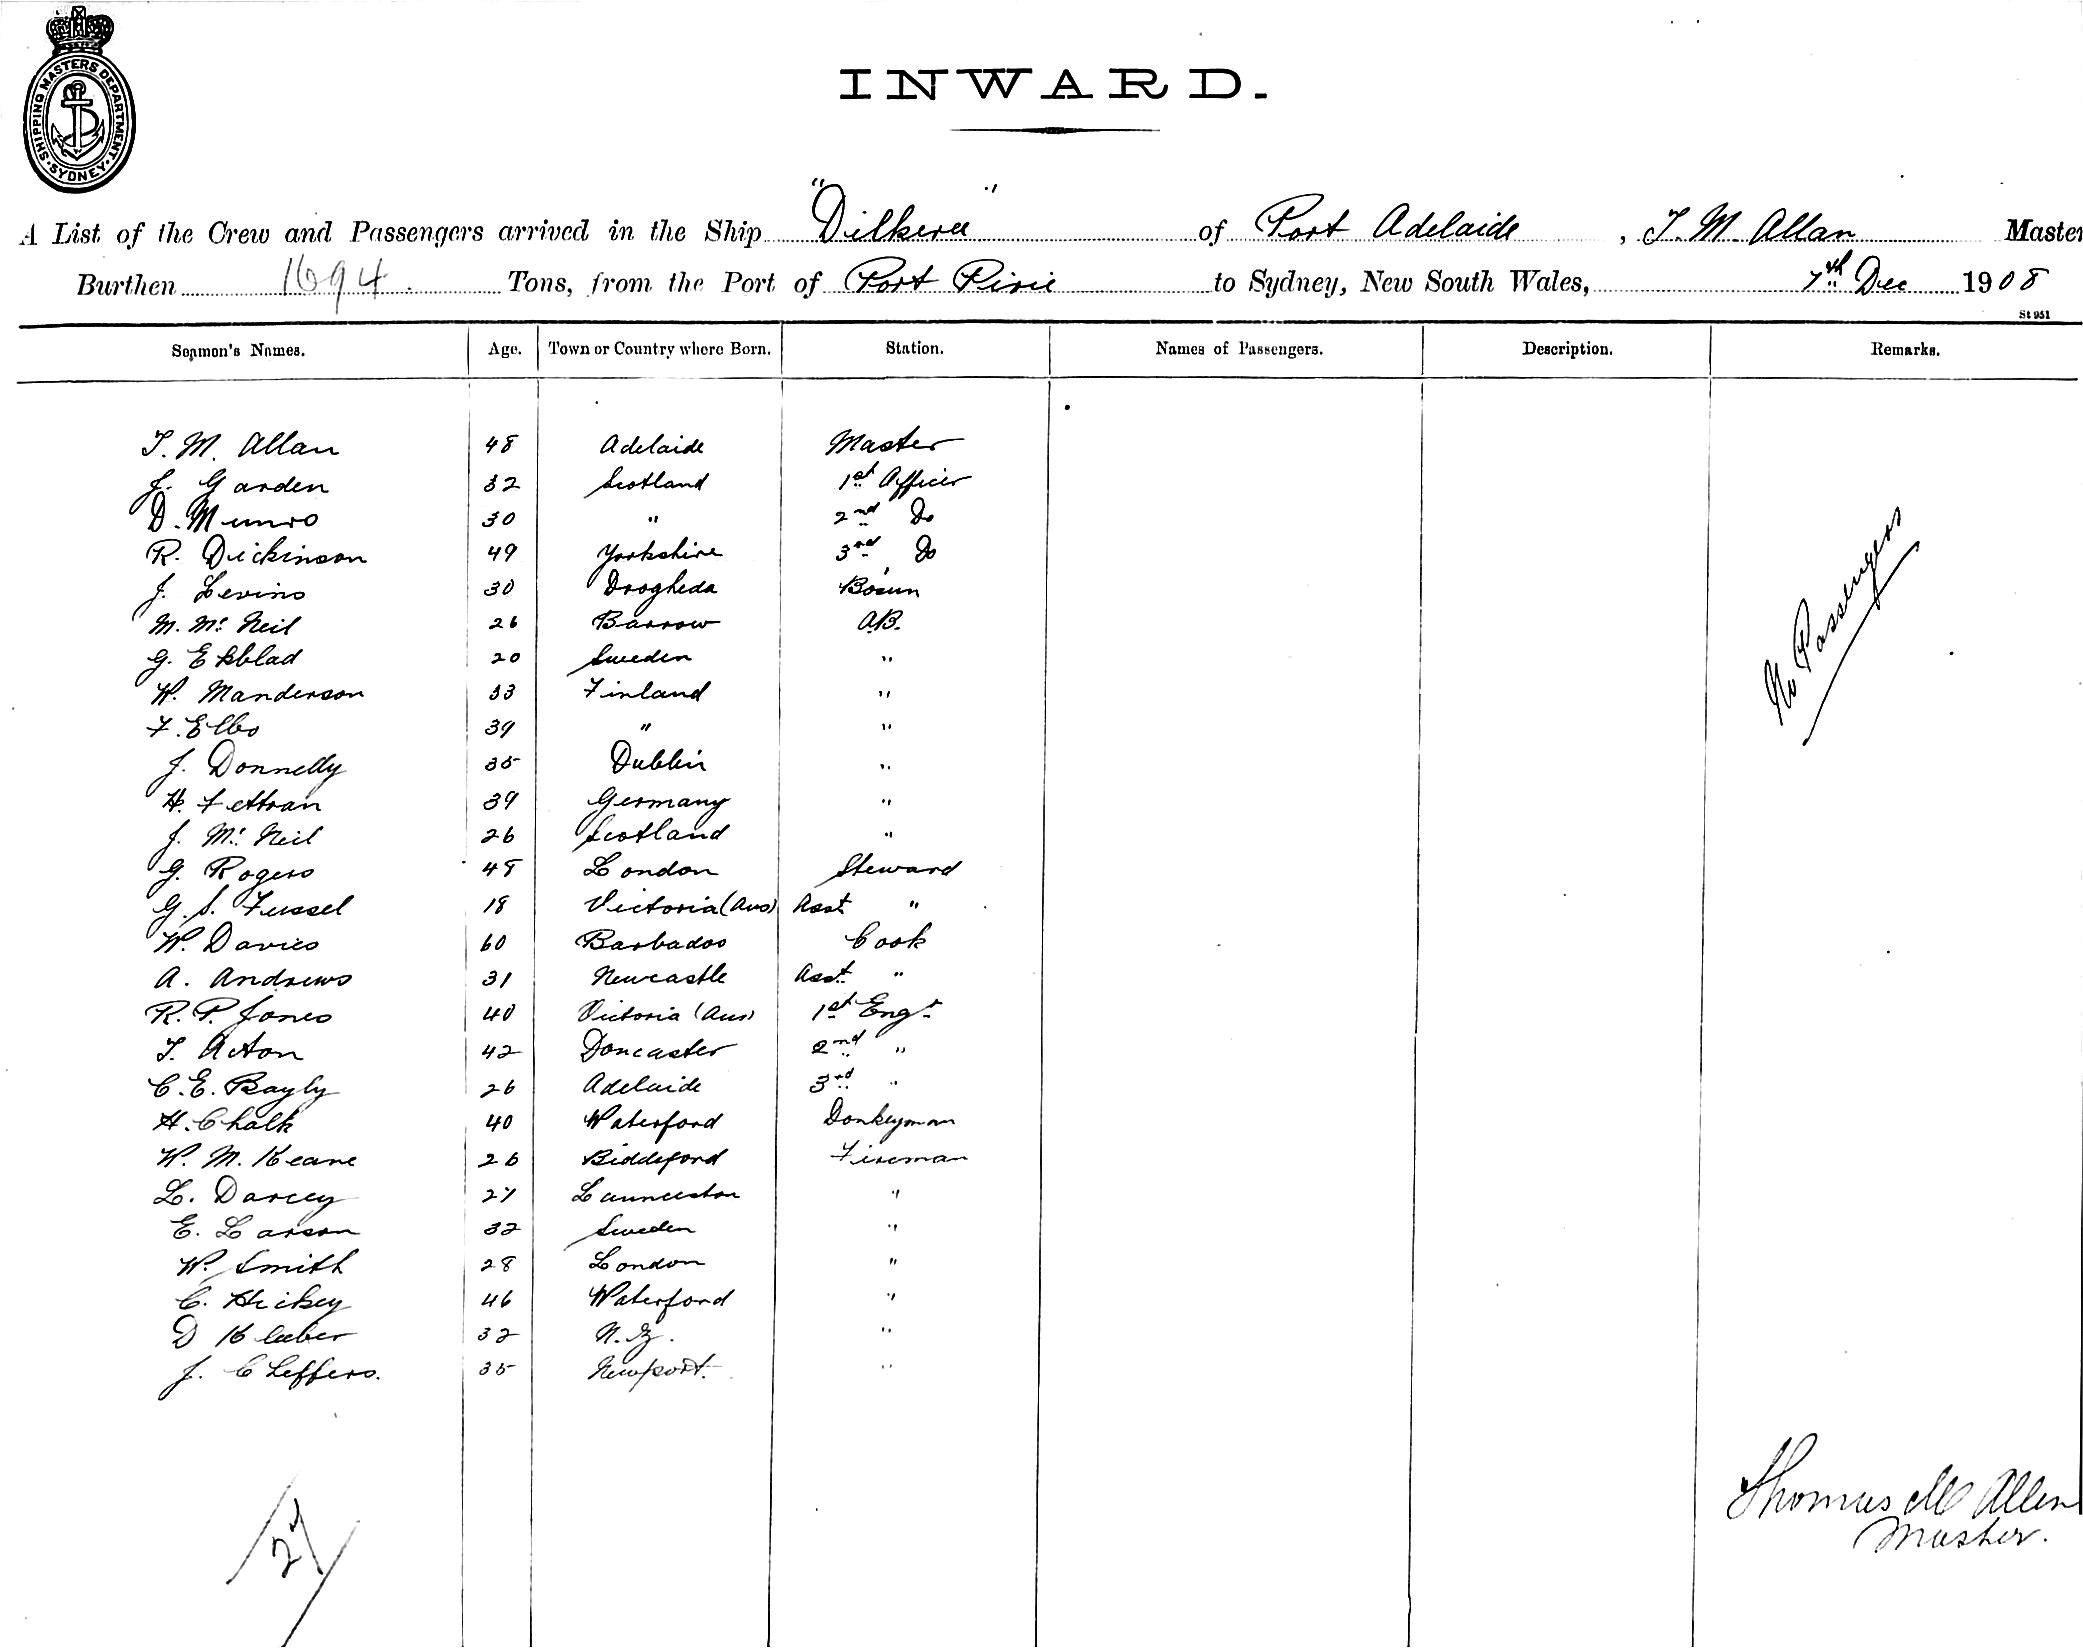 SHIPPING MASTERS DEPARTMENT · SYDNEY ·
INWARD.
A List of the Crew and Passengers arrived in the Ship "Dilkera" of Port Adelaide, T. M. Allan Master
Burthen 1694. Tons, from the Port of Port Pirie to Sydney, New South Wales, 7th Dec 1908
St 951
Seamen's Names. Age. Town or Country where Born. Station. Names of Passengers. Description. Remarks.
T. M. Allan 48 Adelaide Master
J. Garden 32 Scotland 1st Officer
D. Munro 30 " 2nd Do
R. Dickinson 49 Yorkshire 3rd Do
J. Levins 30 Drogheda Bosun
M. Mc Neil 26 Barrow AB.
G. Ekblad 20 Sweden "
W. Manderson 33 Finland "
F. Elbs 39 " "
J. Donnelly 35 Dublin "
H. Fettran 39 Germany "
J. Mc Neil 26 Scotland "
G. Rogers 48 London Steward
G. S. Fussel 18 Victoria (Aus) Asst "
W. Davies 60 Barbados Cook
A. Andrews 31 Newcastle Asst "
R. P. Jones 40 Victoria (Aus) 1st Engr
T. Acton 42 Doncaster 2nd "
C. E. Bayly 26 Adelaide 3rd "
H. Chalk 40 Waterford Donkeyman
W. M. Keane 26 Biddeford Fireman
L. Darcey 27 Launceston "
E. Larson 32 Sweden "
W. Smith 28 London "
C. Hickey 46 Waterford "
D Kluber 32 N.Z. "
J. Cheffers. 35 Newport. "
No Passengers
27
Thomas M Allan
Master.